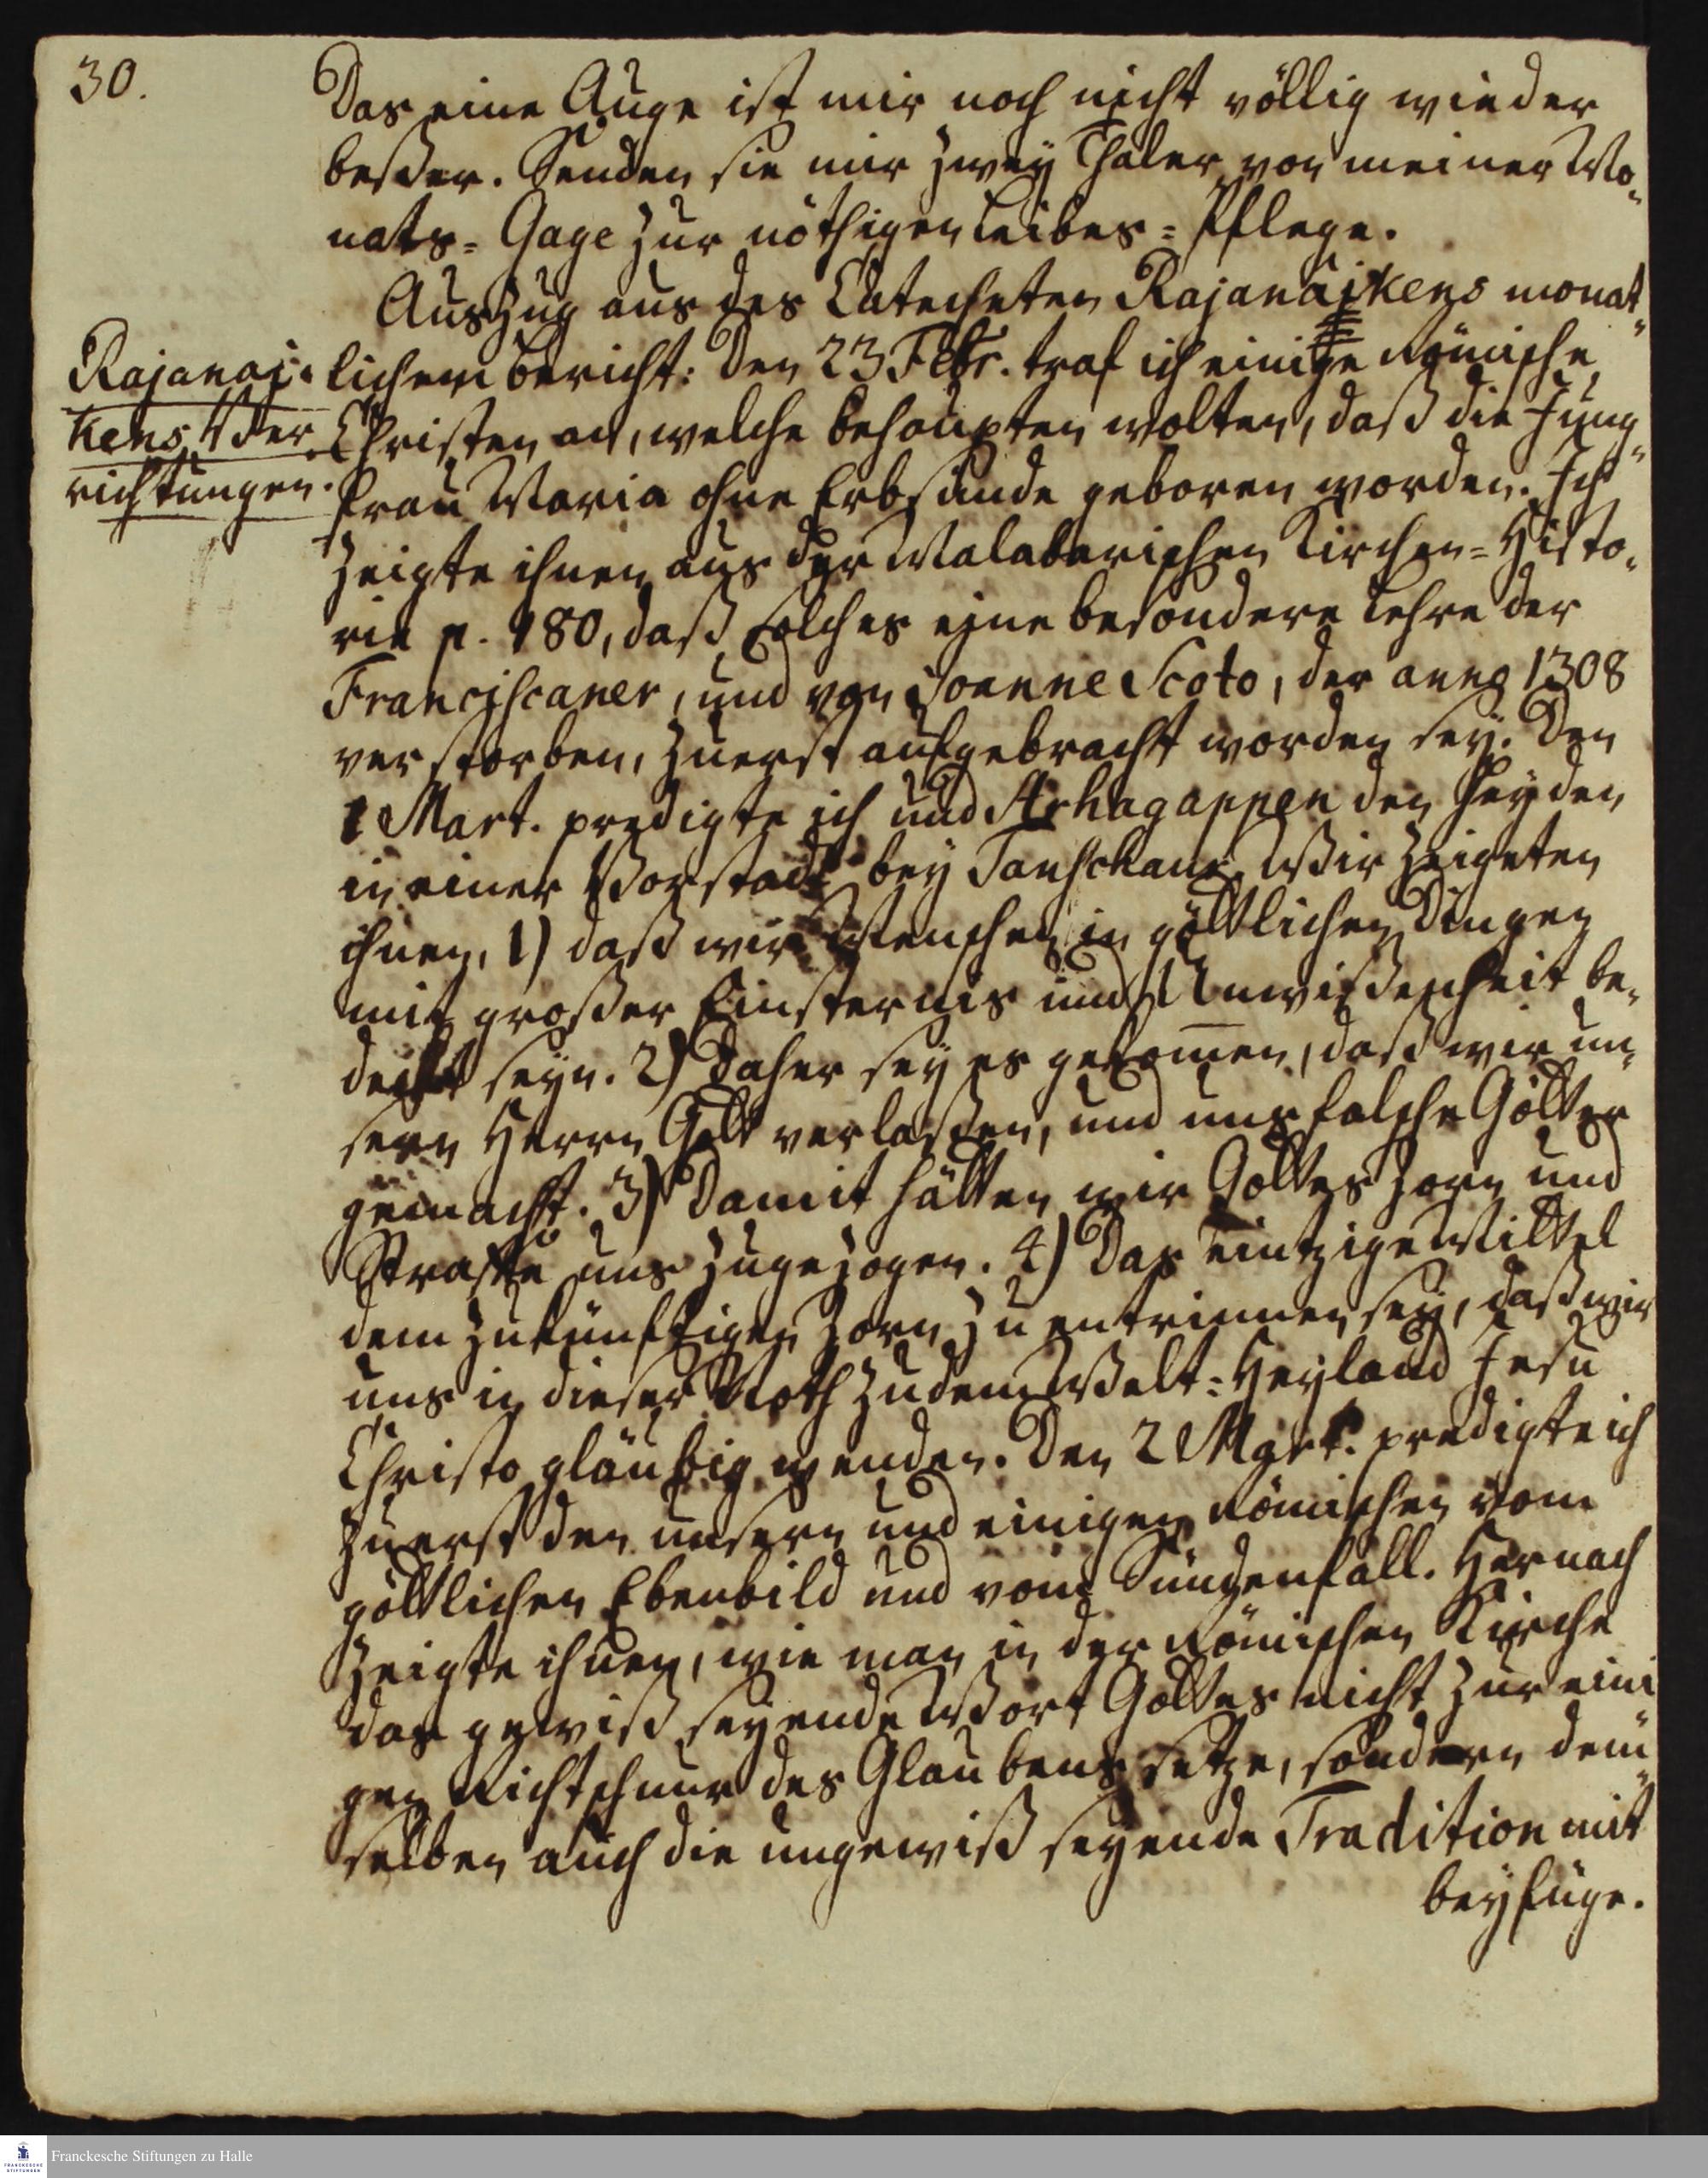 30.
Das eine Auge ist mir noch nicht völlig wieder
beßer. Senden sie mir zwey Thaler von meiner Mo-
nats-Gage zur nöthigen Leibes-Pflege.
Auszug aus des Catecheten Rajanaikens monat-
Rajanai-
kens Ver-
richtungen.
lichem Bericht: Den 23 Febr. traf ich einige Römische
Christen an, welche behaupten wolten, daß die Jung-
frau Maria ohne Erbsünde geboren worden. Ich
zeigte ihnen aus der Malabarischen Kirchen-Histo-
rie p. 180, daß solches eine besondere Lehre der
Franciscaner, und von Joanne Scoto, der anno 1308
verstorben, zuerst aufgebracht worden sey. Den
1 Mart. predigte ich und Arhagappen den Heyden
in einer Vorstadt bey Tanschaur. Wir zeigeten
ihnen, 1) daß wir Menschen in göttlichen Dingen
mit großer Finsternis und Unwißenheit be-
deckt seyn. 2) Daher sey es gekom̅en, daß wir un-
sern Herrn Gott verlaßen, und uns falsche Götter
gemacht. 3) Damit hätten wir Gottes Zorn und
Straffe uns zugezogen. 4) Das eintzige Mittel
dem zukünfftigen Zorn zu entrinnen sey, daß wir
uns in dieser Noth zu dem Welt-Heyland Jesu
Christo gläubig wenden. Den 2 Mart. predigte ich
zuerst den unsern und einigen Römischen vom
göttlichen Ebenbild und vom Sündenfall. Hernach
zeigte ihnen, wie man in der Römischen Kirche
das gewiß seyende Wort Gottes nicht zur eini-
gen Richtschnur des Glaubens setze, sondern dem-
selben auch die ungewiß seyende Tradition mit
beyfüge.
Franckesche Stiftungen zu Halle
FRANCKESCHE
STIFTUNGEN